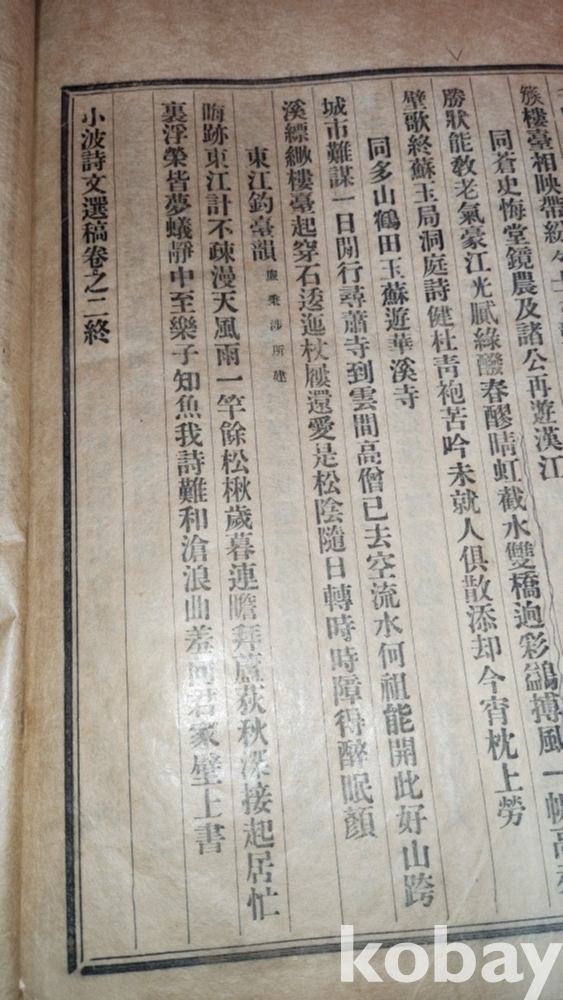 簇樓臺相映帶紛々
同蒼史悔堂鏡農及諸公再遊漢江
勝狀能教老氣豪江光膩綠醱春醪晴虹截水雙橋逈彩鷁搏風一帆高
壁歌終蘇玉局洞庭詩健杜靑袍苦吟未就人俱散添却今宵枕上勞
同多山鶴田玉蘇遊華溪寺
城市難謀一日閒行尋蕭寺到雲間高僧已去空流水何祖能開此好山跨
溪縹緲樓臺起穿石透迤杖屨還愛是松陰隨日轉時時障得醉眠顏
東江釣臺韻 秉涉所建
晦跡東江計不疎漫天風雨一竿餘松楸歲暮連瞻拜蘆荻秋深接起居忙
裏浮榮皆夢蟻靜中至樂子知魚我詩難和滄浪曲羞向君家壁上書
小波詩文選稿卷之二終
kobay